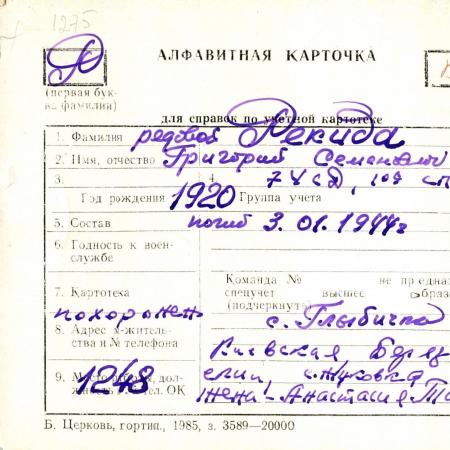 1275
Р
АЛФАВИТНАЯ КАРТОЧКА
(первая бук-
ва фамилии)
для справок по учетной картотеке
1. Фамилия рядовой Рекида
2. Имя, отчество Григорий Семенович
3. 4. 74 сд, 109 сп
Год рождения 1920 Группа учета
5. Состав погиб 3.01.1944г
6. Годность к воен-
службе
Команда № не предназ
7. Картотека спецучет высшее образ
(подчеркнуть)
похоронен с.
8. Адрес м-житель-
ства и № телефона
Киевская,
9. Место дол-
жность отдел. ОК
1248
с. Жуковка
жена - Анастасия
Б. Церковь, гортип., 1985, з. 3589—20000